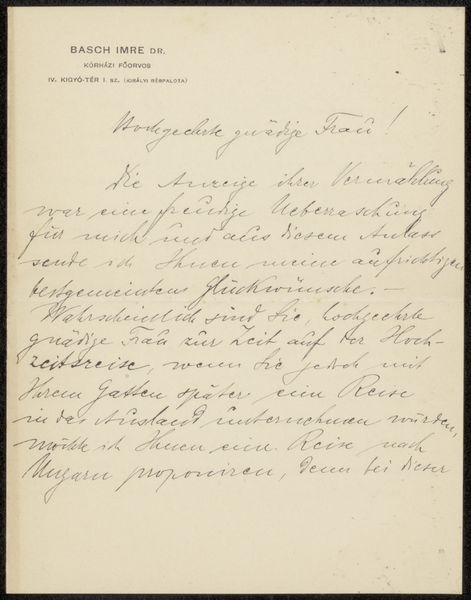 BASCH IMRE DR.
KÓRHÁZI FŐORVOS
IV. KIGYÓ-TÉR 1. SZ. (KIRÁLYI BÉRPALOTA)
Hochgeehrte gnädige Frau!
Die Anzeige ihrer Vermählung
war eine freudige Ueberraschung
für mich und aus diesem Anlass
sende ich Ihnen meine aufrichtigen
bestgemeinten Glückwünsche. –
Wahrscheinlich sind Sie, hochgeehrte
gnädige Frau zur Zeit auf der Hoch-
zeitsreise, wenn Sie jedoch mit
Ihrem Gatten später eine Reise
in das Ausland unternehmen würden,
möchte ich Ihnen eine Reise nach
Ungarn proponiren, denn bei dieser